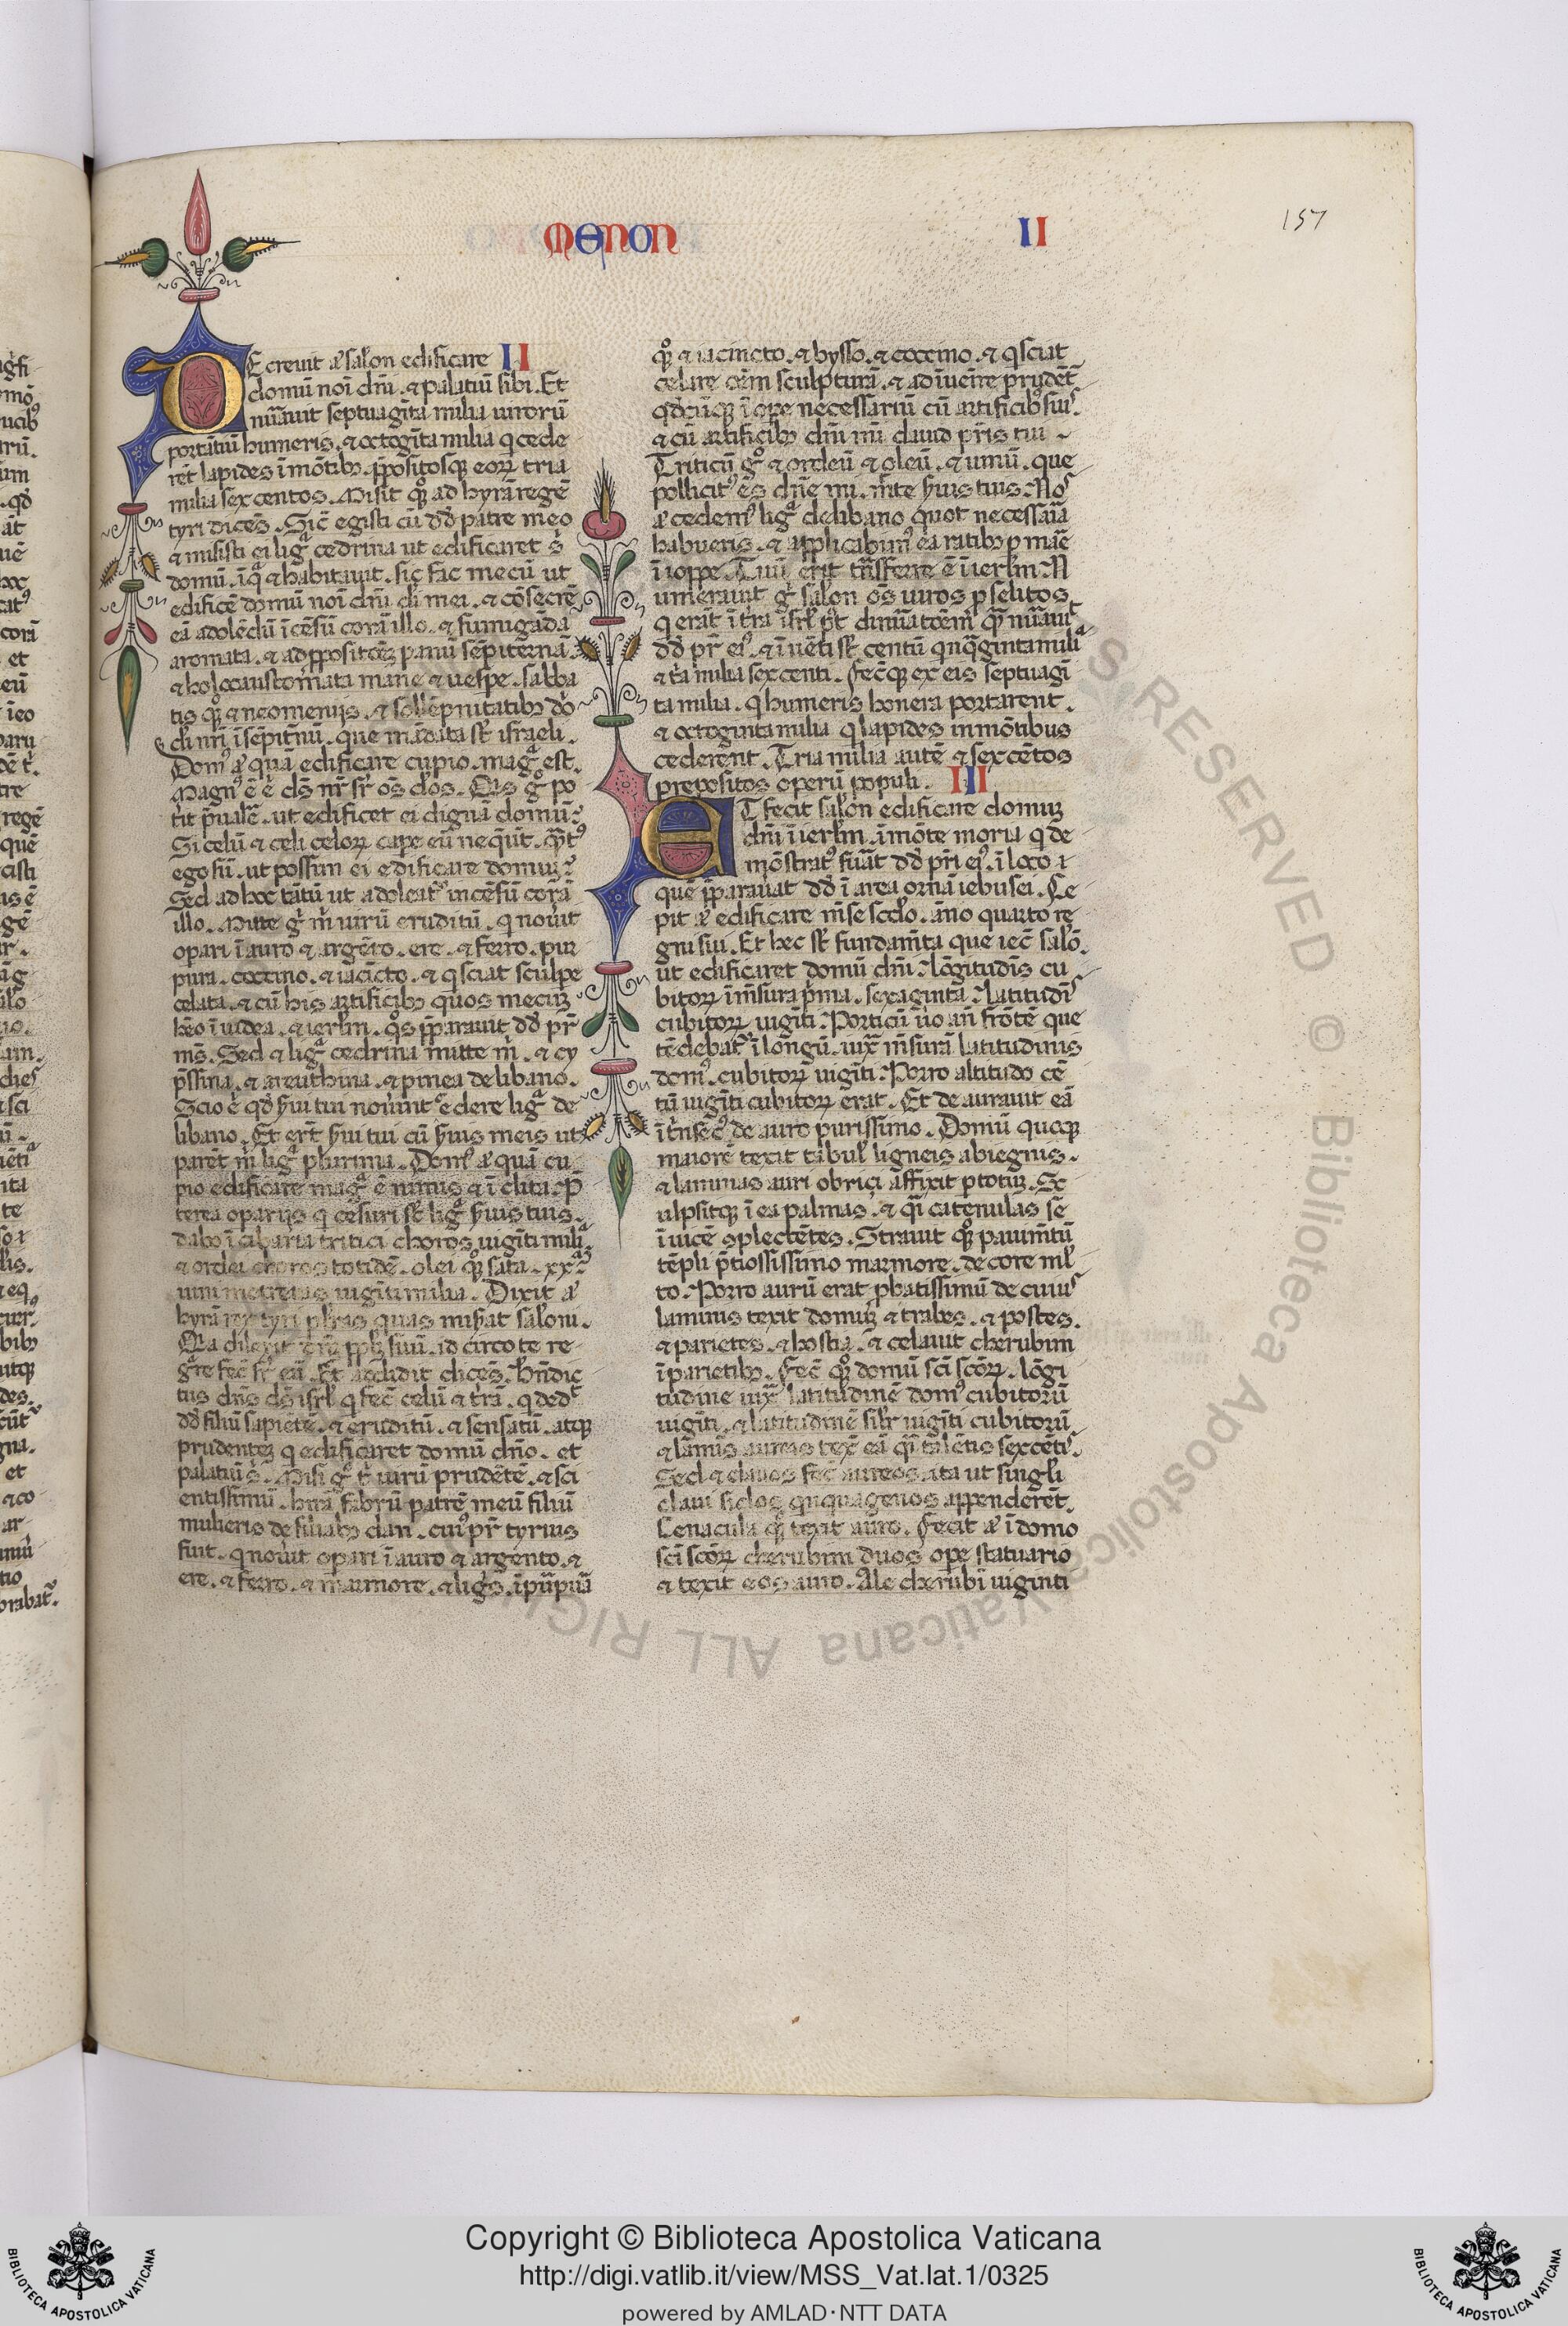 MENON II
157
DE crevit aͥ salon edificare II
domū noi dn̄i . ⁊ palatiū sibi . Et
nūavit septuagīta milia virorū
portātiū humeris . ⁊ octogīta milia q cede
rēt lapides ī mōtibꝫ . p̄positosqꝫ eoꝝ tria
milia sex centos . Misit qꝫ ad hyrā regē
tyri dicēs . Sic̄ egisti cū dd̄ patre meo
⁊ misisti ei ligᵃ cedrina ut edificaret s̄
domū . ī qᵃ ⁊ habitavit . sic fac mecū ut
edificē domū noi dn̄i di mei . ⁊ cōsecrē
eā adolēdū īcēsū corā illo . ⁊ fumigāda
aromata . ⁊ ad p̄positōēꝫ panū sēpiternā
⁊ holocaustom̄ata mane ⁊ vesp̄e . sabba
tis qꝫ ⁊ neomenijs . ⁊ sollēpnitatibꝫ dn̄
di nr̄i ī sēpit̄nū . que mādata st̄ israeli .
Domꝰ aͥ quā edificare cupio . magᵃ est .
Magnꝰ ē ē ds̄ nr̄ sr̄ os̄ deos . Qis gͦ po
tit p̄valē . ut edificet ei dignā domū .
Si celū ⁊ celi celoꝝ cape eū neqūt . qᵃtꝰ
ego sū . ut possim ei edificare domuꝫ
Sed ad hoc tātū ut adoleatʳ incēsū corā
illo . Mitte gͦ m̄ virū eruditū . q novit
opari ī auro ⁊ argēto . ere . ⁊ ferro . pur
pura . coccino . ⁊ iacīcto . ⁊ q sciat sculpe
celata . ⁊ cū his artificibꝫ quos mecuꝫ
hēo ī iudea . ⁊ ierlm̄ . qͦs p̄paravit dd̄ pr̄
ms̄ . Sed ⁊ ligᵃ cedrina mitte m̄ . ⁊ cy
p̄ssina . ⁊ areuthina . ⁊ pinea de libano .
Scio ē qd̄ s̄vi tui novūnt cedere ligᵃ de
libano . Et er̄t s̄vi tui cū s̄vis meis ut
parēt m̄ ligᵃ plurima . Domꝰ aͥ quā cu
pio edificare magᵃ ē nimis ⁊ īclita . P̄
terea oparijs q cesuri st̄ ligᵃ s̄vis tuis .
dabo ī cibaria tritici choros vigīti miliᵃ
⁊ ordei choros totidē . olei qꝫ sata . xxᵃ
vini metretas vigīti milia . Dixit aͥ
hyrā rex tyri p̄ lr̄as quas mis̄at saloni .
Qia dilexit dn̄s pp̄lꝫ suū . idcirco te re
gᵃre fec̄ sr̄ eā . Et addidit dicēs . Bn̄dic
tus dn̄s ds̄ isrl̄ q fec̄ celū ⁊ tr̄ā . q dedᵗ
dd̄ filiū sapiētē . ⁊ eruditū . ⁊ sensatū . atqꝫ
prudenteꝫ q edificaret domū dn̄o . et
palatiū s̄ . Misi gͦ t̄ virū prudētē . ⁊ sci
entissimū . hirā fabrū patrē meū filiū
mulieris de filiabꝫ dan . cuiꝰ pr̄ tyrius
fuit . q novit opari ī auro ⁊ argento . ⁊
ere . ⁊ ferro . ⁊ marmore . ⁊ ligīs . ī pūpuā
qꝫ ⁊ iacincto . ⁊ bysso . ⁊ coccino . ⁊ q sciat
celare oēm sculpturā . ⁊ ad īvenire prudēt̄
qd̄cūqꝫ ī ope necessariū cū artificibꝫ suis
⁊ cū artificibꝫ dn̄i mī david pr̄is tui
Triticū gͦ ⁊ ordeū ⁊ oleū . ⁊ vinū . que
pollicitꝰ es dn̄e mi . mitte s̄vis tuis . Nos
aͥ cedemꝰ ligᵃ de libano quot necessaīa
habueris . ⁊ applicabimꝰ ea ratibꝫ p maē
ī ioppe . Tuū erit trās̄ferre ē ī ierlm̄ . N
umeravit gͦ salon os̄ viros p̄selitos
q erāt ī tr̄a isrl̄ p̄t dinūatōēm̄ qᵃ nūavit
dd̄ pr̄ eiꝰ . ⁊ īvēti st̄ centū qnqᵃginta miliᵃ
⁊ tria milia sex centi . Fecitqꝫ ex eis septuagī
ta milia . q humeris honera portarent .
⁊ octoginta milia q lapides in mōtibus
cederent . Tria milia autē ⁊ sex cētos
prepositos operū populi . III
ET fecit salon edificare domuꝫ
dn̄i ī ierlm̄ . ī mōte moria q de
mōstratꝰ fuāt dd̄ pr̄i eiꝰ . ī loco
quē p̄paravat dd̄ ī area ornā iebusei . Ce
pit aͥ edificare mēse scd̄o . āno quarto re
gni sui . Et hec st̄ fundam̄ta que iec̄ salō .
ut edificaret domū dn̄i . lōgitudīs cu
bitoꝝ ī mēsura p̄ma . sexaginta . Latitudīs
cubitoꝝ vigīti . Porticū v̄o an̄ frōtē que
tēdebatʳ ī longū . iuxᵃ mēsurā latitudinis
domꝰ . cubitoꝝ vigīti . Porro altitudo cē
tū vigīti cubitoꝝ erat . Et de auravit eā
ītrīsecꝰ de auro purissimo . Domū quoqꝫ
maiorē texit tabulꝭ ligneis abiegnis .
⁊ laminas auri obrizi affixit p totuꝫ . Sc
ulpsitqꝫ ī ea palmas . ⁊ qᵃi catenulas se
ī vicē ꝯplectētes . Stravit qꝫ pavim̄tū
tēpli p̄tiossissimo marmore . de core ml̄
to . Porro aurū erat p̄batissimū de cuius
laminis texit domuꝫ ⁊ trabes . ⁊ postes .
⁊ parietes . ⁊ hostia . ⁊ celavit cherubim
ī parietibꝫ . Fec̄ qꝫ domū sc̄i sc̄oꝝ . lōgi
tudine iuxᵃ latitudinē domꝰ cubitorū
vigīti . ⁊ latitudinē silr̄ vigīti cubitorū
⁊ lāmīs aureis tex̄ eā qᵃi talētis sexcētis
Sed ⁊ clavos fec̄ aureos . ita ut singl̄i
clavi siclos qnquagenos appenderēt .
Cenacula qꝫ texit auro . Fecit aͥ ī domo
sc̄i sc̄oꝝ cherubim duos ope statuario
⁊ texit eos auro . Ale cherubī viginti
ALL RIGHTS RESERVED © Biblioteca Apostolica Vaticana
Copyright © Biblioteca Apostolica Vaticana
http://digi.vatlib.it/view/MSS_Vat.lat.1/0325
powered by AMLAD·NTT DATA
BIBLIOTECA APOSTOLICA VATICANA
BIBLIOTECA APOSTOLICA VATICANA